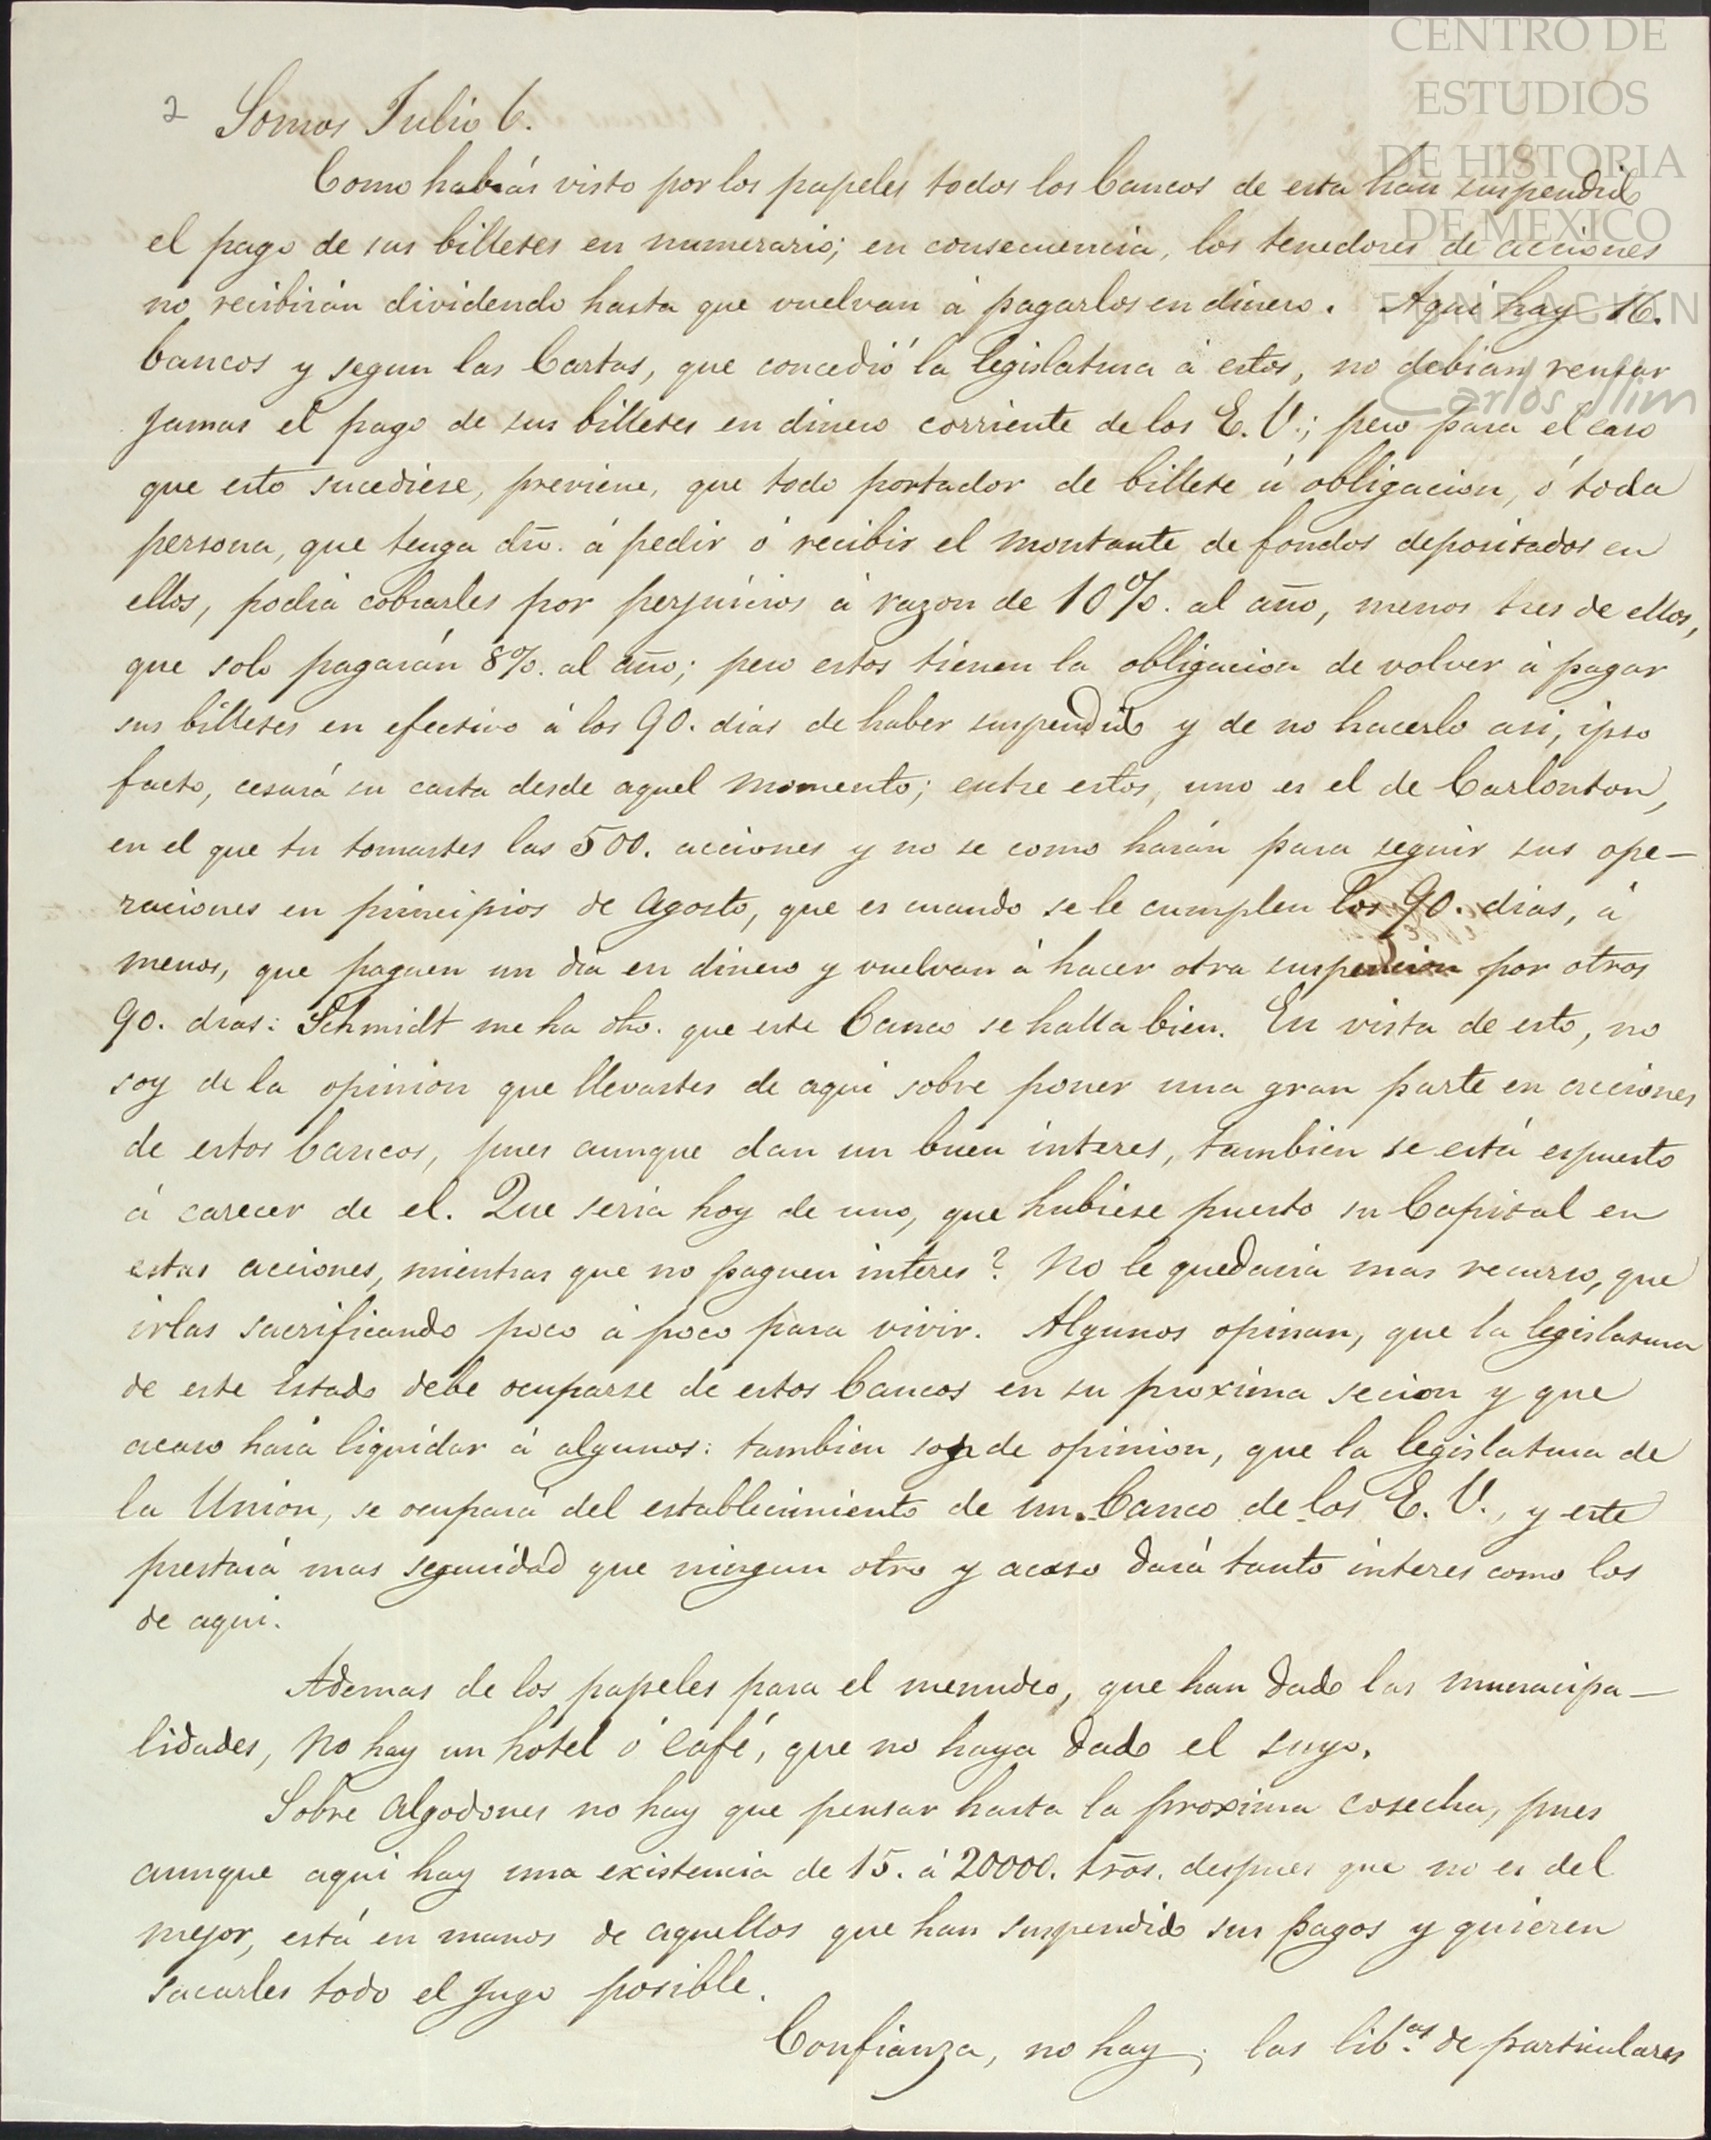 CENTRO DE
ESTUDIOS
DE HISTORIA
DE MEXICO
FUNDACION
Carlos Slim
2 Somos Julio 6.
Como habrás visto por los papeles todos los bancos de esta han suspendido
el pago de sus billetes en numerario; en consecuencia, los tenedores de acciones
no recibirán dividendo hasta que vuelvan á pagarlos en dinero. Aqui hay 16.
bancos y segun las Cartas, que concedió la legislatura á estos, no debian reusar
jamas el pago de sus billetes en dinero corriente de los E. U.; pero para el caso
que esto sucediese, previene, que todo portador de billete ú obligacion, ó toda
persona, que tenga dro. á pedir ó recibir el montante de fondos depositados en
ellos, podrá cobrarles por perjuicios á razon de 10%. al año, menos tres de ellos,
que solo pagarán 8%. al año; pero estos tienen la obligacion de volver á pagar
sus billetes en efectivo á los 90. dias de haber suspendido y de no hacerlo asi, ipso
facto, cesará su carta desde aquel momento; entre estos, uno es el de Carlonton,
en el que tu tomastes las 500. acciones y no se como harán para seguir sus ope-
raciones en principios de Agosto, que es cuando se le cumplen los 90. dias, á
menos, que paguen un dia en dinero y vuelvan á hacer otra suspencion por otros
90. dias: Schmidt me ha dho. que este Banco se halla bien. En vista de esto, no
soy de la opinion que llevastes de aqui sobre poner una gran parte en acciones
de estos bancos, pues aunque dan un buen interes, tambien se está espuesto
á carecer de el. Que seria hoy de uno, que hubiese puesto su Capital en
estas acciones, mientras que no paguen interes? No le quedaria mas recurso, que
irlas sacrificando poco á poco para vivir. Algunos opinan, que la legislatura
de este Estado debe ocuparse de estos bancos en su proxima secion y que
acaso hará liquidar á algunos: tambien soy de opinion, que la legislatura de
la Union, se ocupará del establecimiento de un Banco de los E. U., y este
prestará mas seguridad que ningun otro y acaso dará tanto interes como los
de aqui.
Ademas de los papeles para el menudeo, que han dado las municipa-
lidades, no hay un hotel ó café, que no haya dado el suyo.
Sobre algodones no hay que pensar hasta la proxima cosecha, pues
aunque aqui hay una existencia de 15. á 20000. trõs. despues que no es del
mejor, está en manos de aquellos que han suspendido sus pagos y quieren
sacarles todo el jugo posible.
Confianza, no hay; las lib.as de particulares